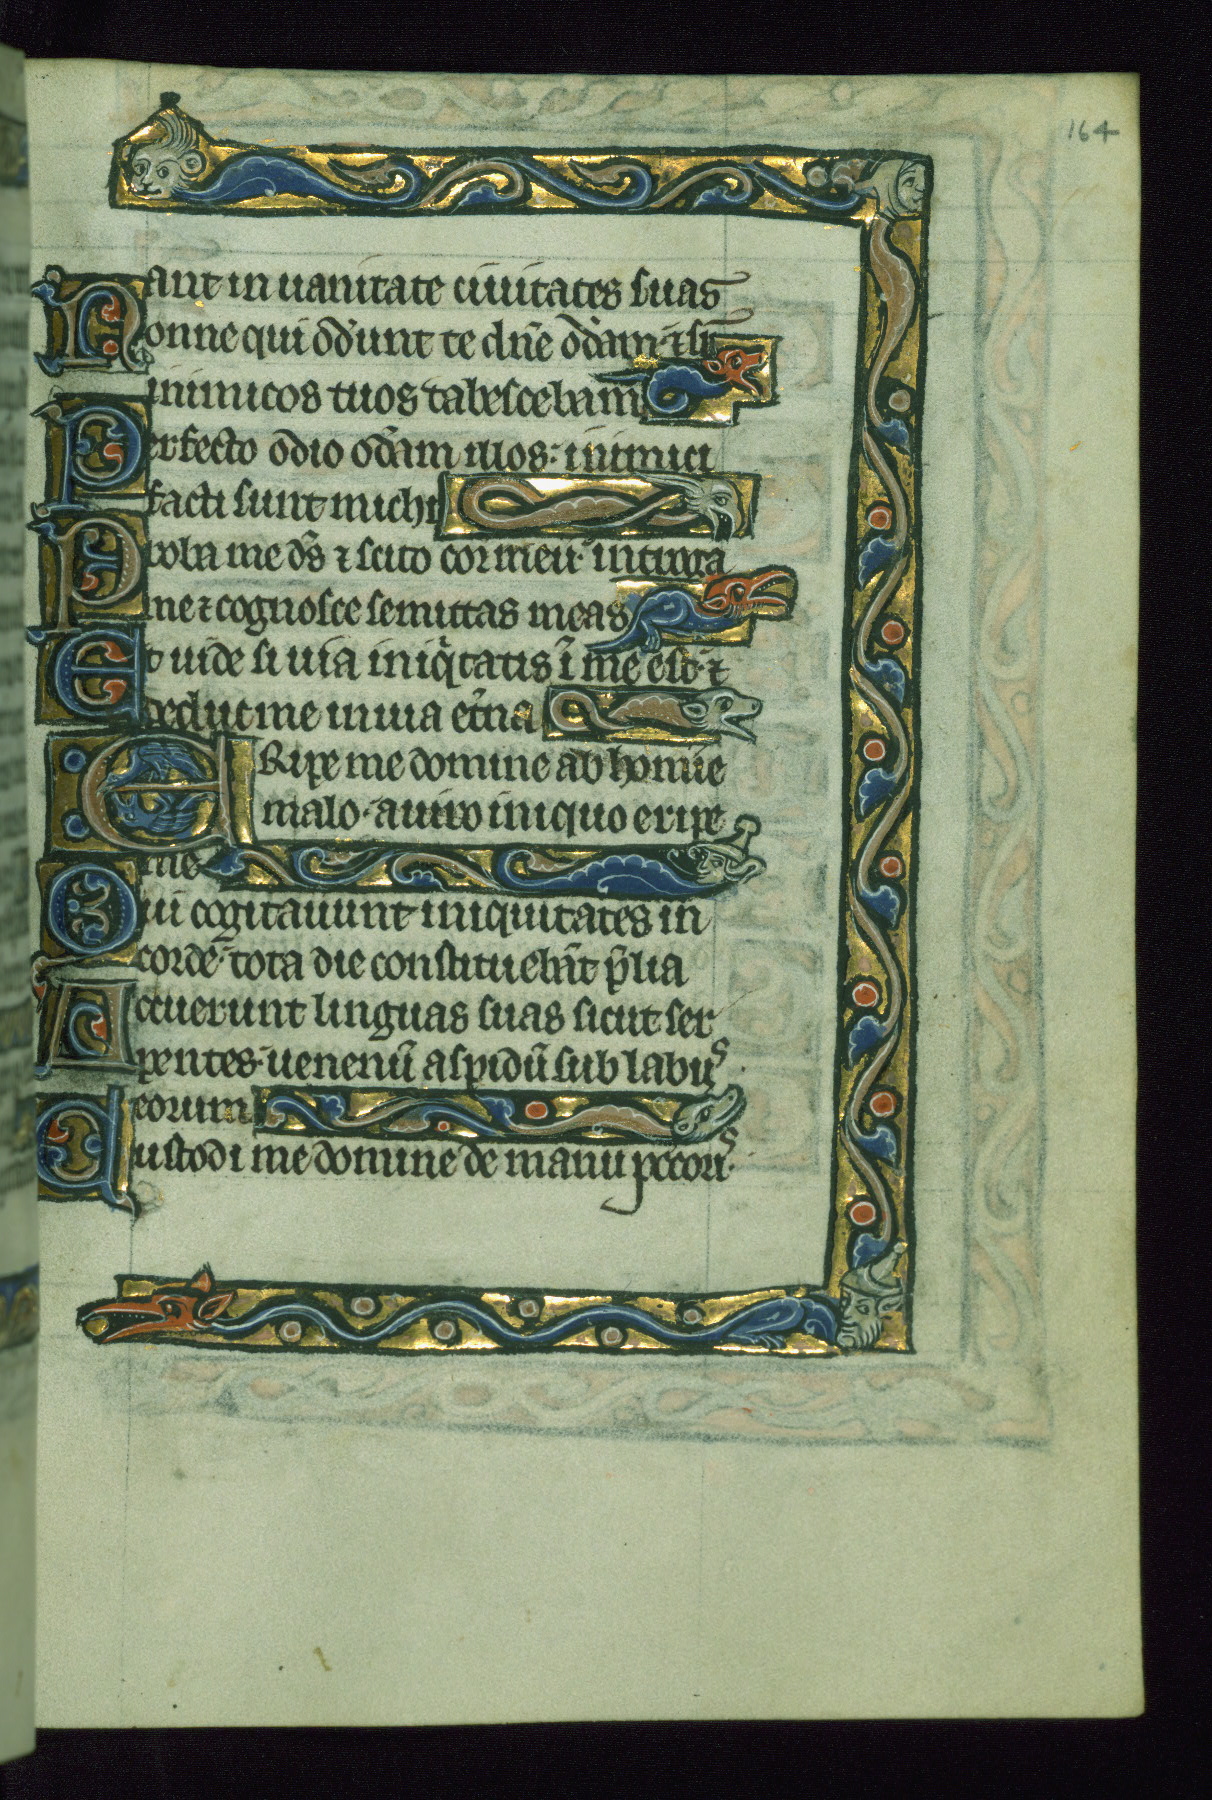 164
ant in uanitate ciuitates suas
Nonne qui oderunt te dñe oderam ⁊ sup
inimicos tuos tabescebam
Perfecto odio oderam illos: inimici
facti sunt michi
Proba me ds̃ ⁊ scito cor meũ: intrroga
me ⁊ cognosce semittas meas
Et uide si uia iniqͥtatis ĩ me est: ⁊
deduc me in uia et̃na
ERipe me domine ab homĩe
malo· a uiro iniquo eripe
me
Qui cogitauunt iniquitates in
corde: tota die constituebãt p̃lia
Acuerunt linguas suas sicut ser
pentes: uenenũ aspidũ sub labiis
eorum
Custodi me domine de manu pcc̃oris